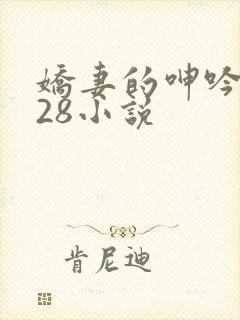 嬌妻的呻吟
28小說
肯尼迪